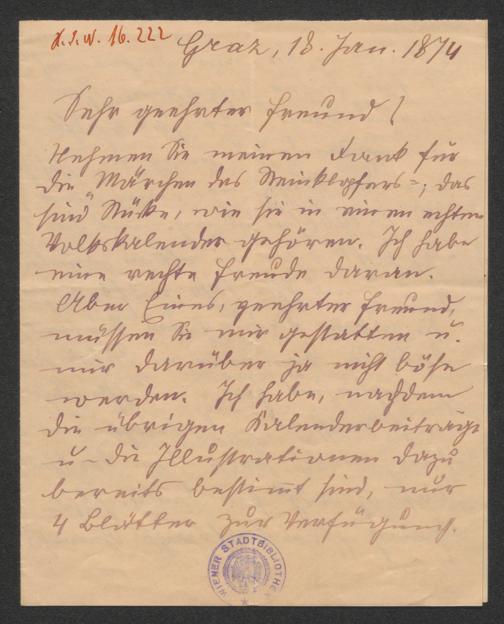 H.I.N. 16.222
Graz, 18. Jan. 1874
Sehr geehrter Freund!
Nehmen Sie meinen Dank für
die "Märchen des Steinklopfers"; das
sind Stücke, wie sie in einen echten
Volkskalender gehören. Ich habe
eine rechte Freude daran.
Aber Eines, geehrter Freund,
müssen Sie mir gestatten u.
mir darüber ja nicht böse
werden. Ich habe, nachdem
die übrigen Kalenderbeiträge
u. die Illustrationen dazu
bereits bestimmt sind, nur
4 Blätter zur Verfügung.
WIENER STADTBIBLIOTHEK